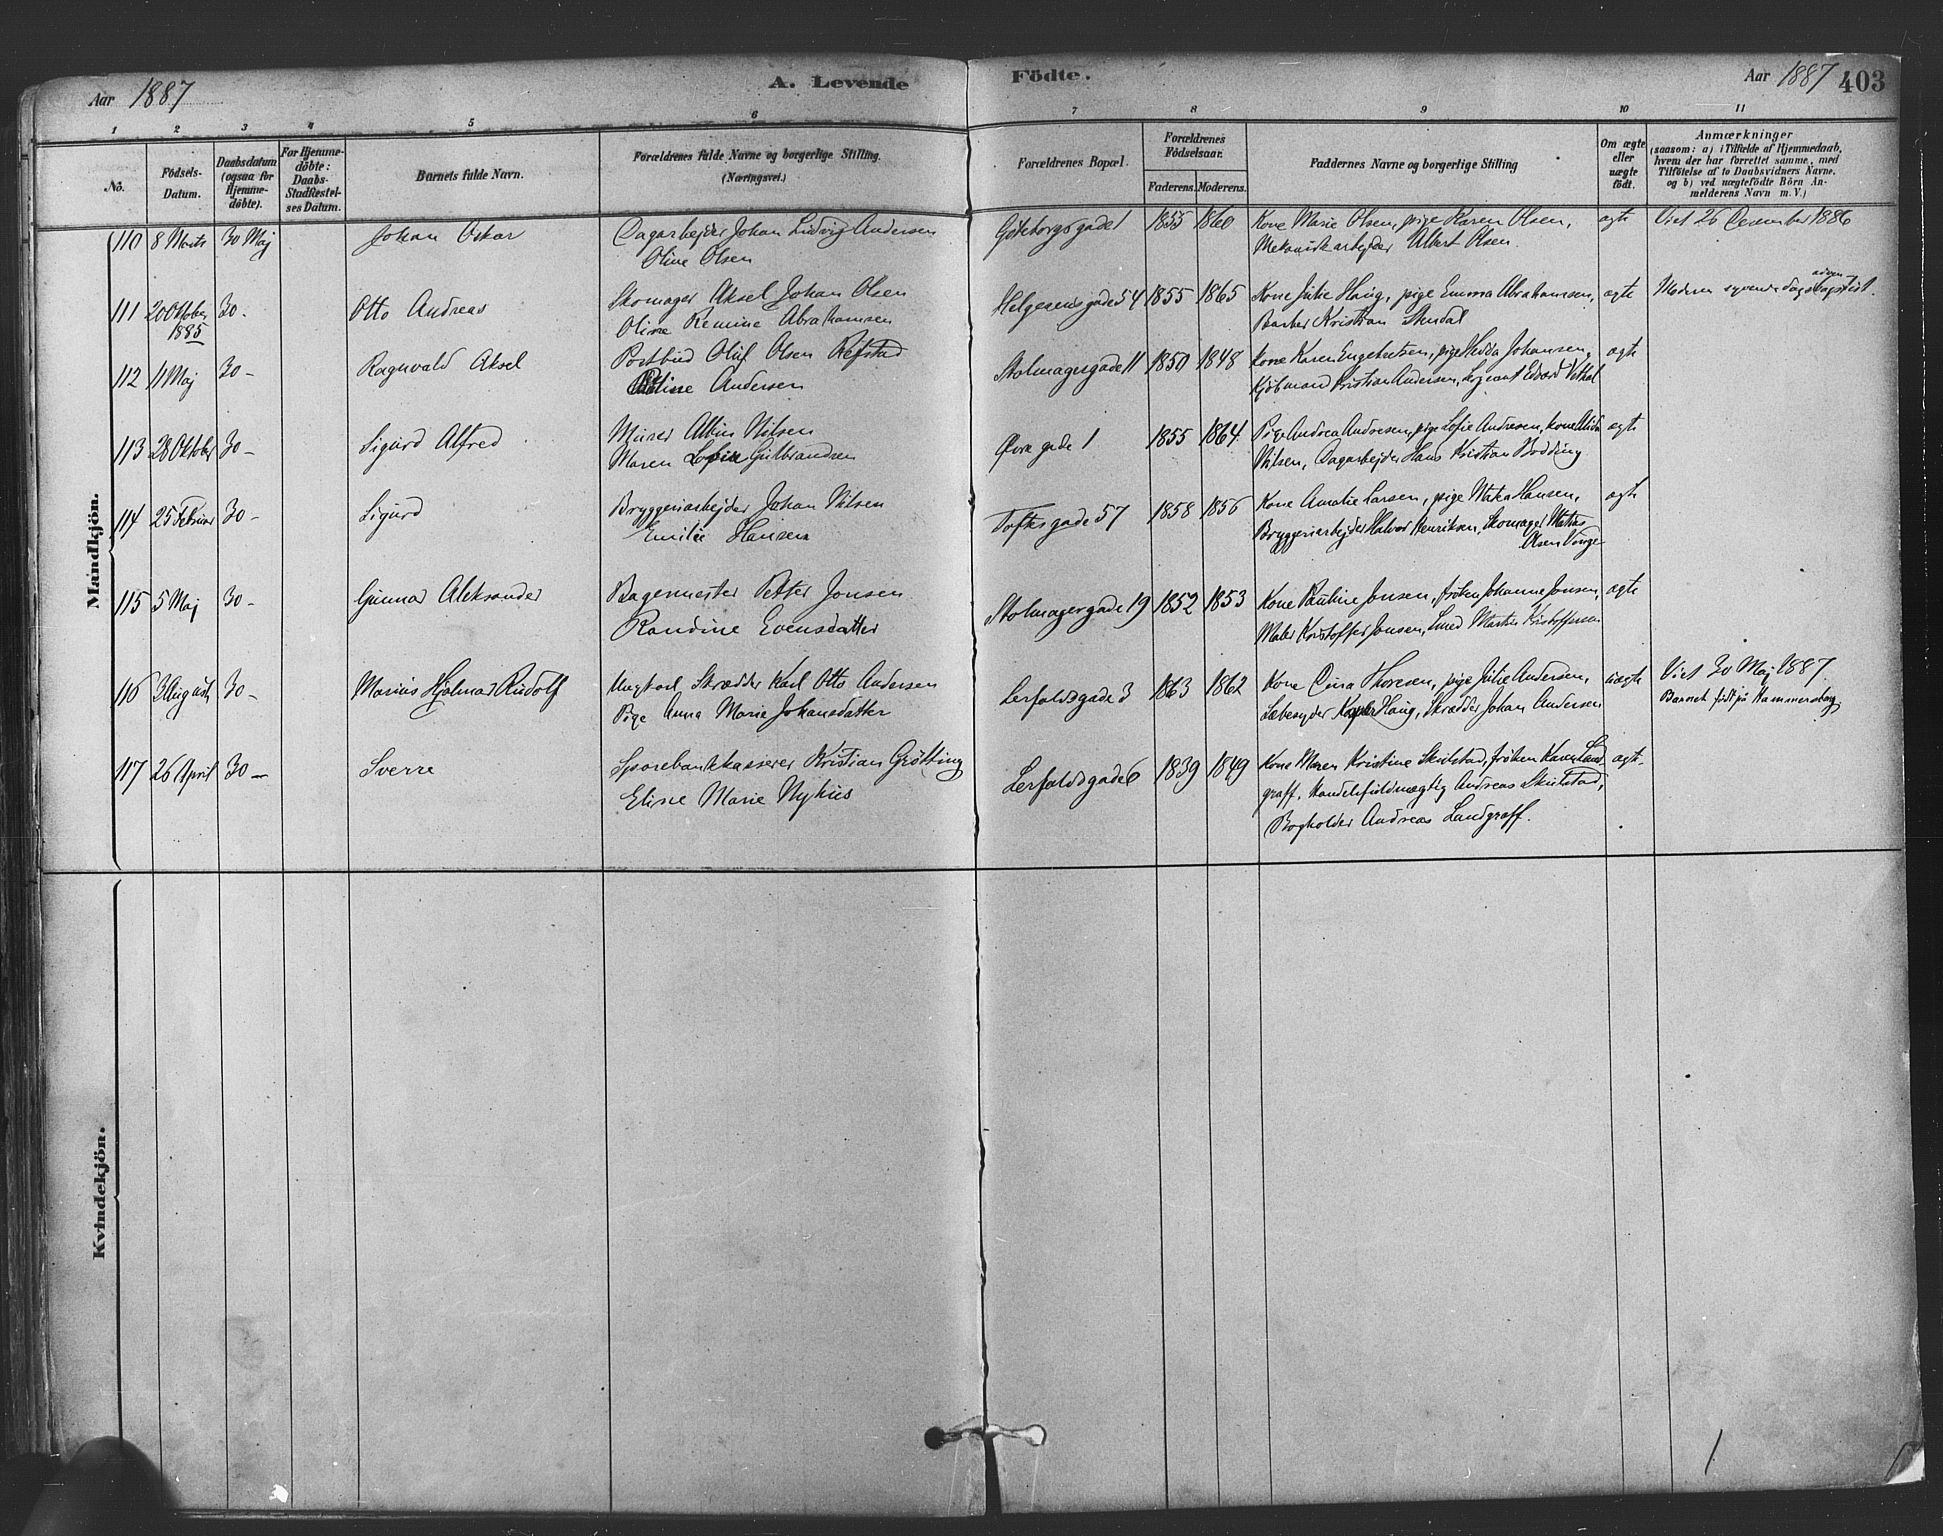 Aar 1887 A. Levende Födte. Aar 1887 403
1 2 3 4 5 6 7 8 9 10 11
No.
Födsels-Datum.
Daabsdatum (ogsaa for Hjemme-döbte).
For Hjemme-döbte: Daabs-Stadfæstel-ses Datum.
Barnets fulde Navn.
Forældrenes fulde Navne og borgerlige Stilling. (Næringsvei.)
Forældrenes Bopæl.
Forældrenes Födselsaar.
Faderens. Moderens.
Faddernes Navne og borgerlige Stilling
Om ægte eller uægte födt.
Anmærkninger
(saasom: a) i Tilfælde af Hjemmedaab,
hvem der har forrettet samme, med
Tilföielse af to Daabsvidners Navne.
og b) ved uægtefödte Börn An-
melderens Navn m. V.)
Mandkjön.
110 8 Marts 30 Maj Johan Oskar Dagarbejder Johan Ludvig Andersen Göteborgsgade 1 1855 1860 Kone Marie Olsen, pige Karen Olsen, ægte Viet 26 December 1886
Oline Olsen Mekaniskarbejder Albert Olsen.
111 20 Oktober 30 - Otto Andreas Skomager Aksel Johan Olsen Helgesensgade 54 1855 1865 Kone Julie Haug, pige Emma Abrahamsen, ægte Moderen syvende dags adven
1885 Oline Remine Abrahamsen Barber Kristian Stendal
112 11 Maj 30 - Ragnvald Aksel Postbud Oluf Olsen Refstad Stolmagergade 11 1850 1848 Kone Karen Engebretsen, pige Hedda Johansen, ægte
Andersen Kjöbmand Kristian Andersen, Sergeant Edvard
113 28 Oktober 30 - Sigurd Alfred Murer Albin Nilsen Övre gade 1 1855 1864 Pige Andrea Andresen, pige Sofie Andresen, kone Alida ægte
Maren Sofie Gulbrandsen Nilsen, Dagarbejder Hans Kristian Bodding
114 25 Februar 30 - Sigurd Bryggeriarbejder Johan Nilsen Toftesgade 57 1858 1856 Kone Amalie Larsen, pige Maka Hansen, ægte
Emilie Hansen Bryggeriarbejder Halvor Henriksen, Skomager Matias
Olsen
115 5 Maj 30 - Gunnar Aleksander Bagermester Petter Jonsen Stolmagergade 19 1852 1853 Kone Pauline Jonsen, fröken Johanne Jonsen, ægte
Randine Evensdatter Maler Kristoffer Jonsen, Smed Martin Kristoffersen
116 3 August 30 - Marius Hjalmar Rudolf Ungkarl Skrædder Karl Otto Andersen Lerfaldsgade 3 1863 1862 Kone Thoresen, pige Julie Andersen, uægte Viet 30 Maj 1887.
Pige Anna Marie Johansdatter Haug, Skrædder Johan Andersen Barnet födt på Hammersborg
117 26 April 30 - Sverre Sparebankkasserer Kristian Grötting Lerfaldsgade 6 1839 1849 Kone Maren Kristine Skulstad, fröken Karen Land ægte
Elise Marie Nyhus graff, Handelsfuldmægtig Andreas Skulstad,
Bogholder Andreas Landgraff.
Kvindekjön.